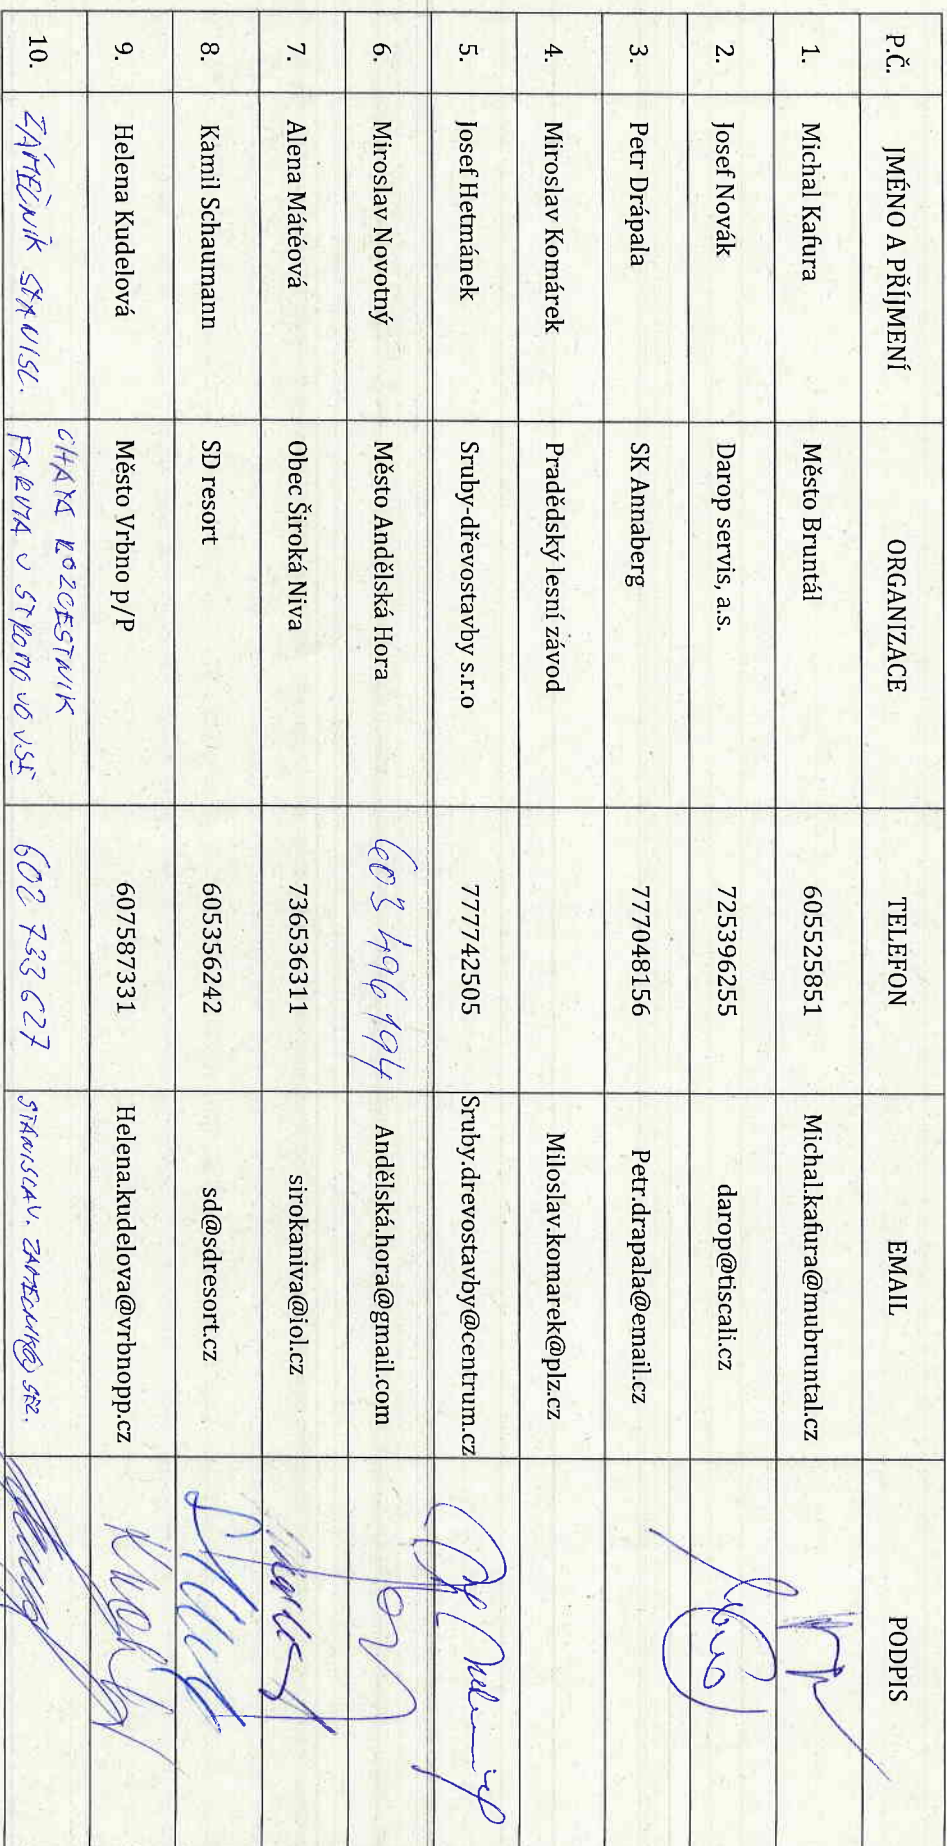 P.Č. JMÉNO A PŘÍJMENÍ ORGANIZACE TELEFON EMAIL PODPIS
1. Michal Kafura Město Bruntál 605525851 Michal.kafura@mubruntal.cz
2. Josef Novák Darop servis, a.s. 725396255 darop@tiscali.cz
3. Petr Drápala SK Annaberg 777048156 Petr.drapala@email.cz
4. Miroslav Komárek Pradědský lesní závod Miloslav.komarek@plz.cz
5. Josef Hetmánek Sruby-dřevostavby s.r.o 777742505 Sruby.drevostavby@centrum.cz
6. Miroslav Novotný Město Andělská Hora 603 496 194 Andělská.hora@gmail.com
7. Alena Mátéová Obec Široká Niva 736536311 sirokaniva@iol.cz
8. Kamil Schaumann SD resort 605356242 sd@sdresort.cz
9. Helena Kudelová Město Vrbno p/P 607587331 Helena.kudelova@vrbnopp.cz
CHATA ROZCESTNIK
10. ZÁMEČNÍK STANISL. FARMA V STROMOVO VSI 602 733 627 STANISLAV.ZAMECNIK@SEZ.